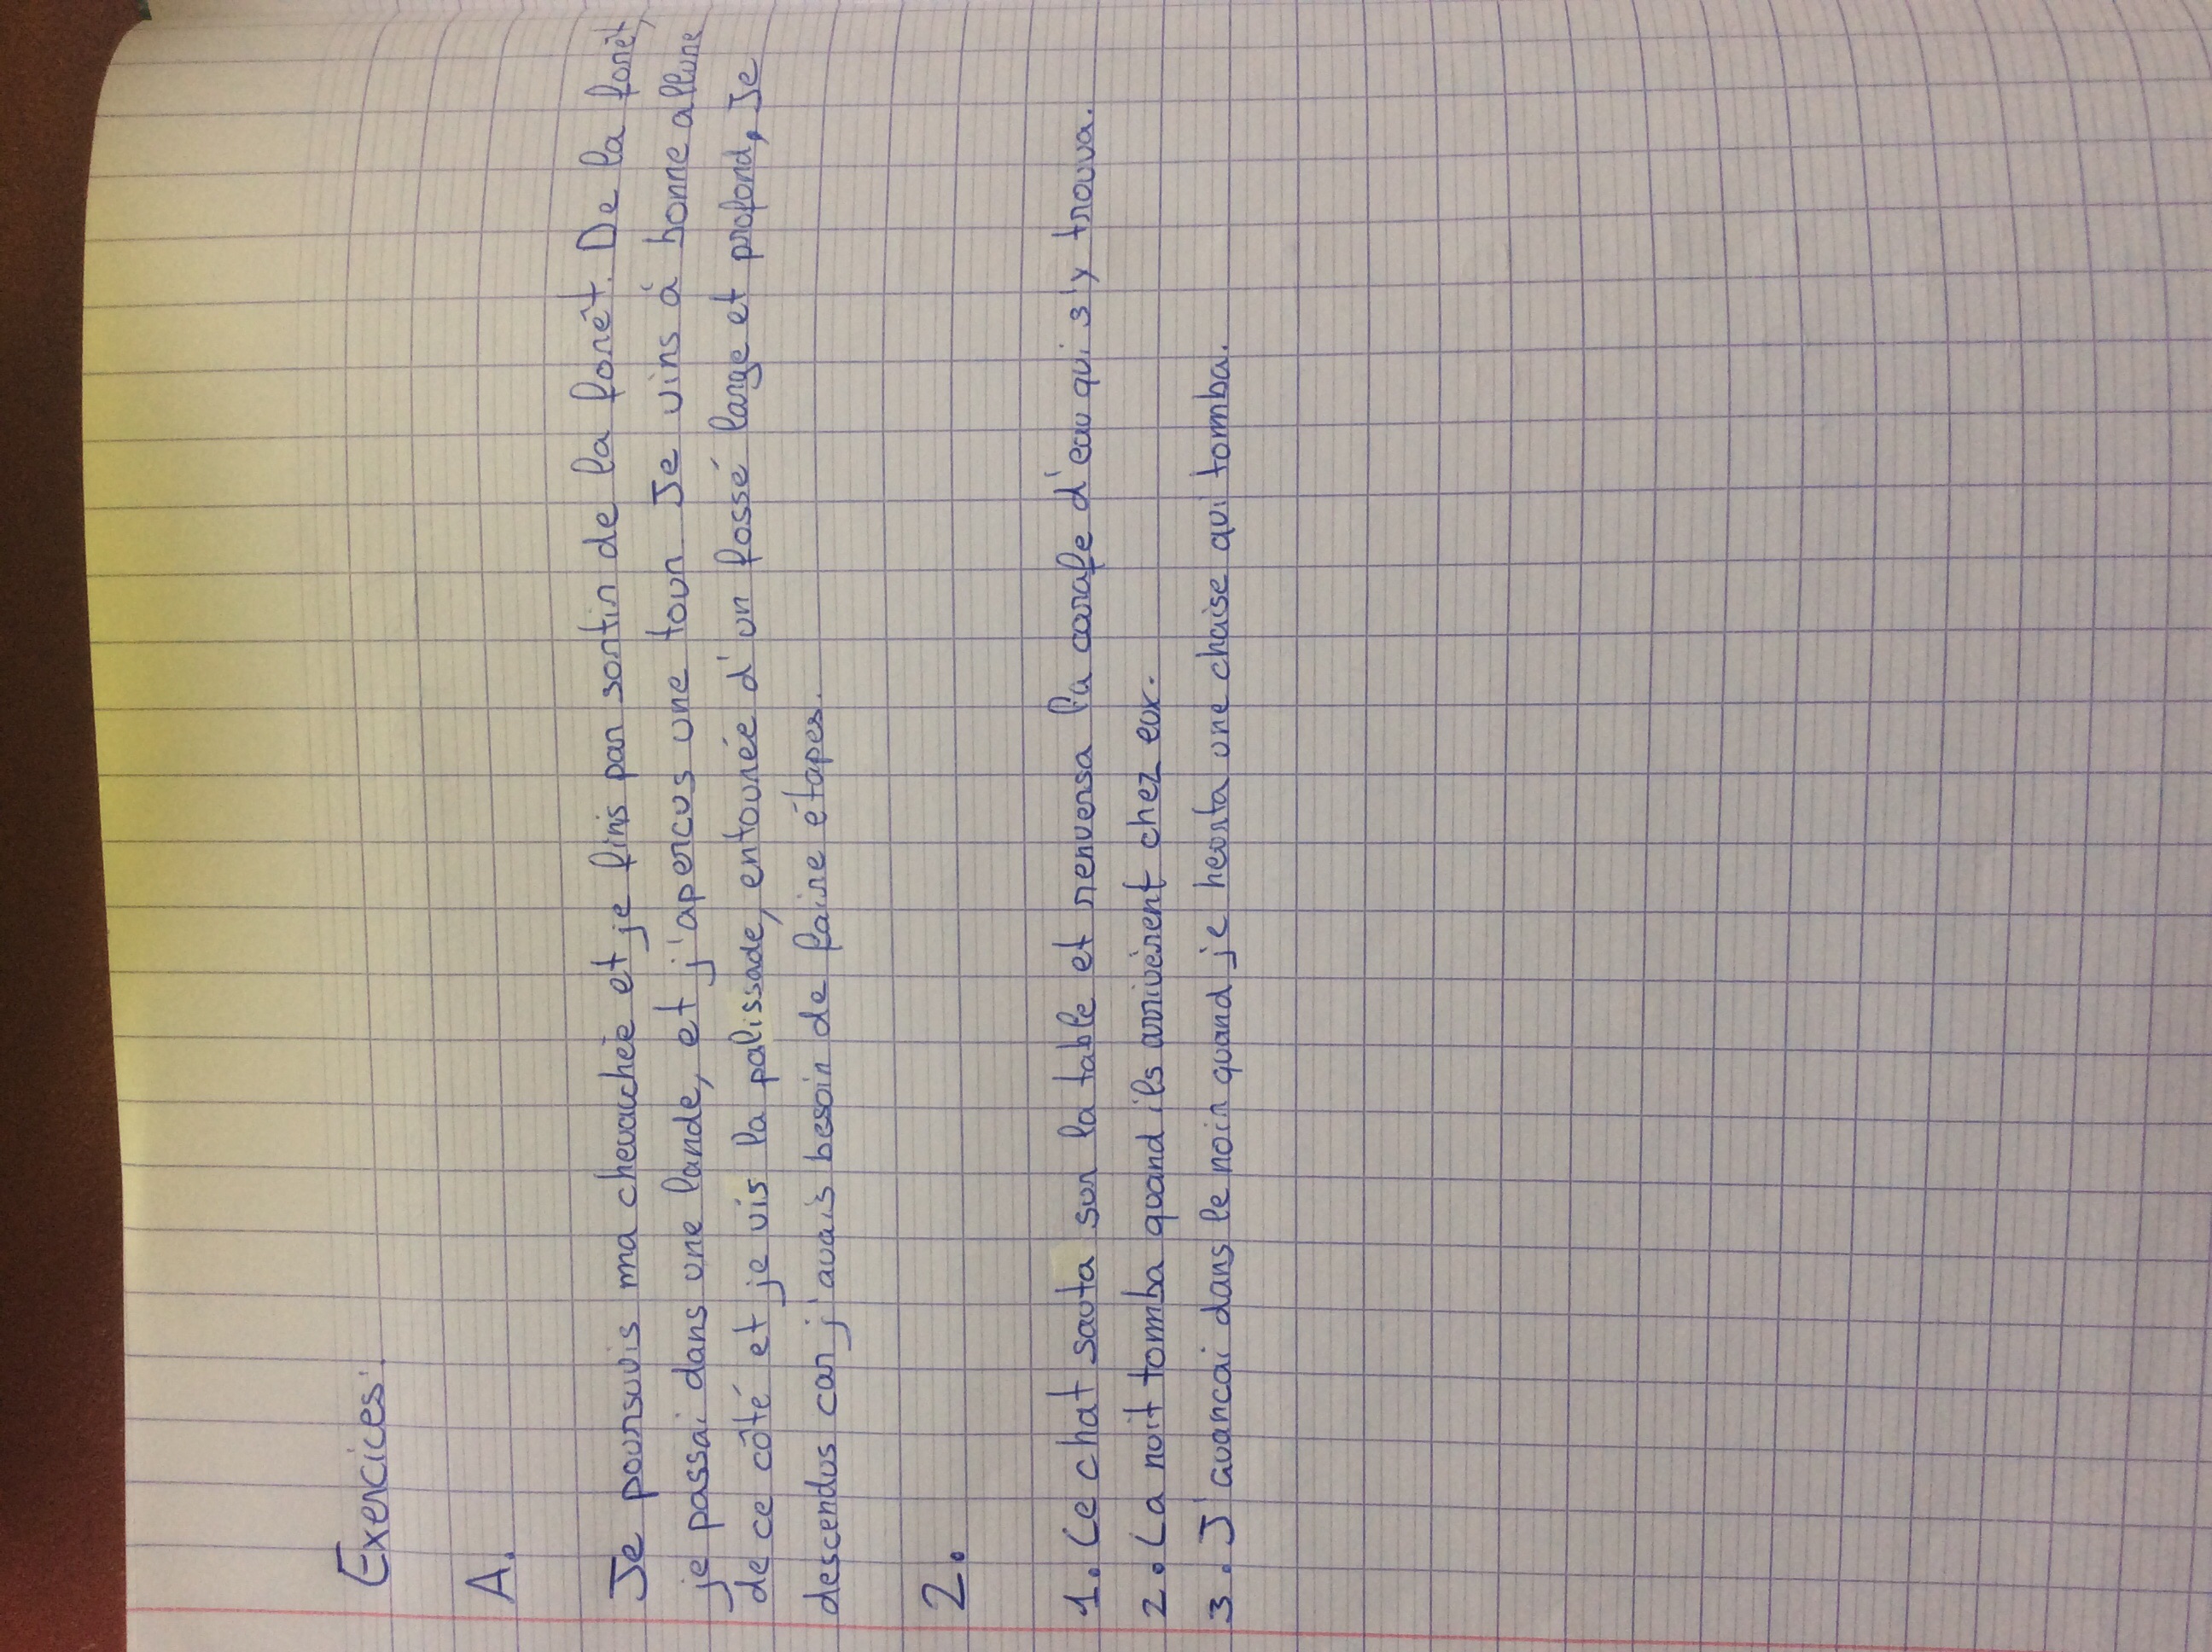 Exercices:
A.
Je poursuivis ma chevauchée et je finis par sortir de la forêt. De la forêt,
je passai dans une lande, et j'apercus une tour Je vins à bonne allure
de ce côté et je vis la palissade, entourée d'un fossé large et profond, Je
descendus car j'avais besoin de faire étapes.
2.
1. Le chat sauta sur la table et renversa la carafe d'eau qui s'y trouva.
2. La nuit tomba quand ils arrivèrent chez eux.
3. J'avancai dans le noir quand je heurta une chaise qui tomba.